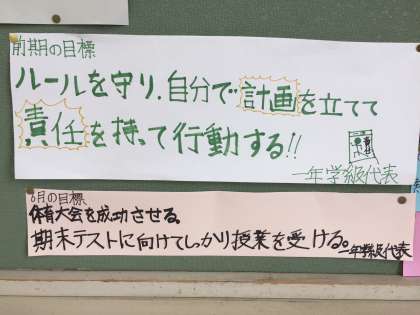 前期の目標
ルールを守り、自分で計画を立てて
責任を持って行動する!!
一年学級代表
6月の目標
体育大会を成功させる。
期末テストに向けてしっかり授業を受ける。
一年学級代表